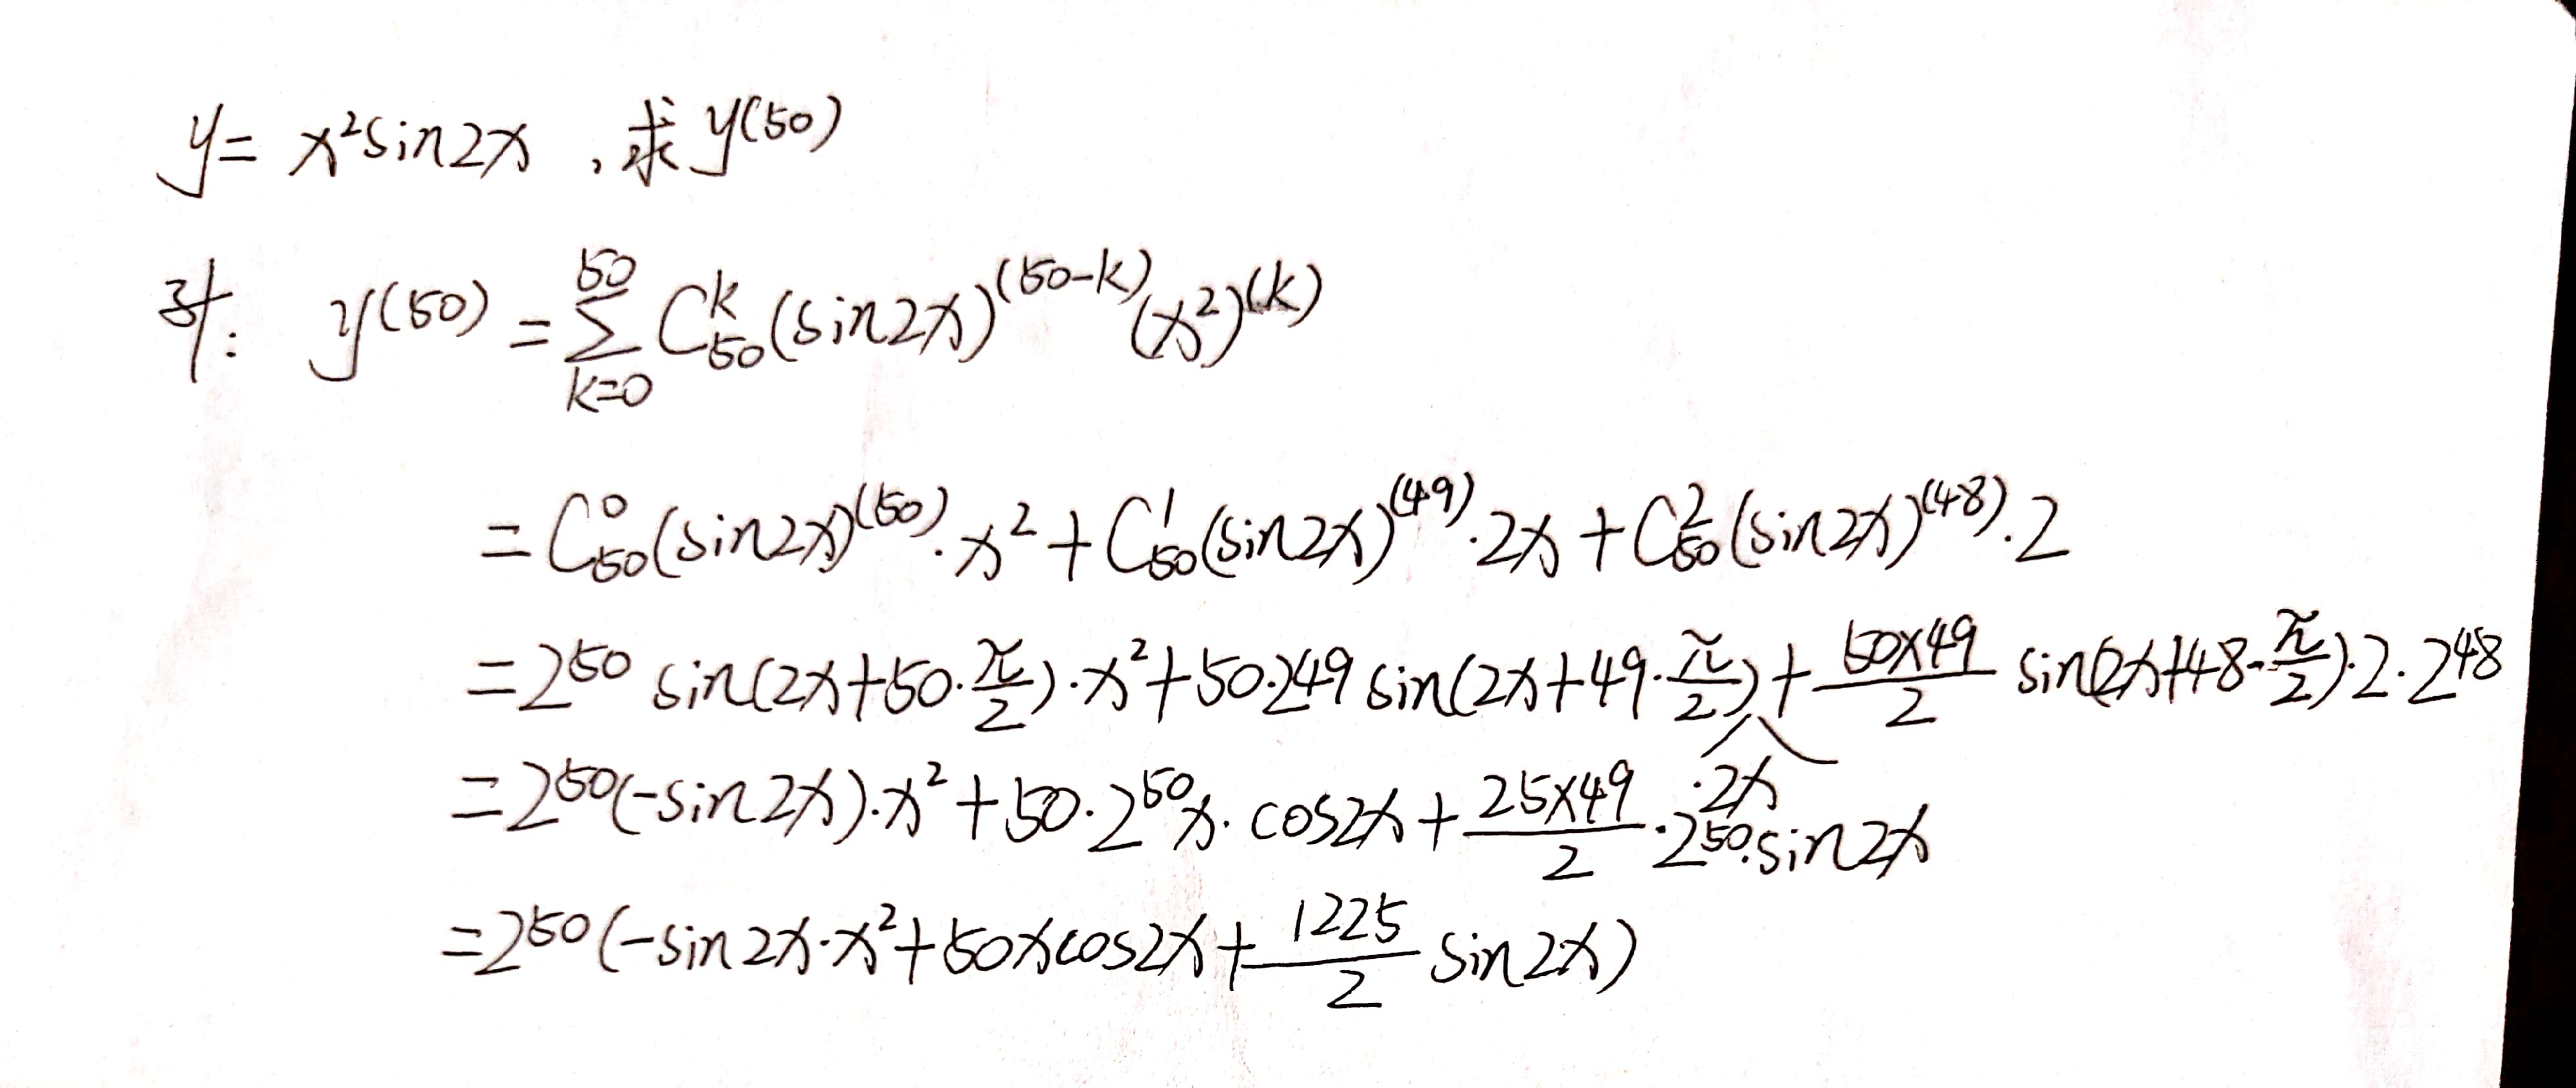 y = x²sin2x , 求y⁽⁵⁰⁾
对: y⁽⁵⁰⁾ = ∑_{k=0}^{50} C_{50}^{k} (sin2x)^{(50-k)} (x²)^{(k)}
= C_{50}^{0} (sin2x)^{(50)} · x² + C_{50}^{1} (sin2x)^{(49)} · 2x + C_{50}^{2} (sin2x)^{(48)} · 2
= 2^{50} sin(2x+50·\frac{π}{2}) · x² + 50·2^{49} sin(2x+49·\frac{π}{2}) · 2x + \frac{50×49}{2} sin(2x+48·\frac{π}{2}) · 2 · 2^{48}
= 2^{50}(-sin2x) · x² + 50 · 2^{50} x · cos2x + \frac{25×49}{2} · 2^{50} · sin2x
= 2^{50}(-sin2x · x² + 50xcos2x + \frac{1225}{2} sin2x)